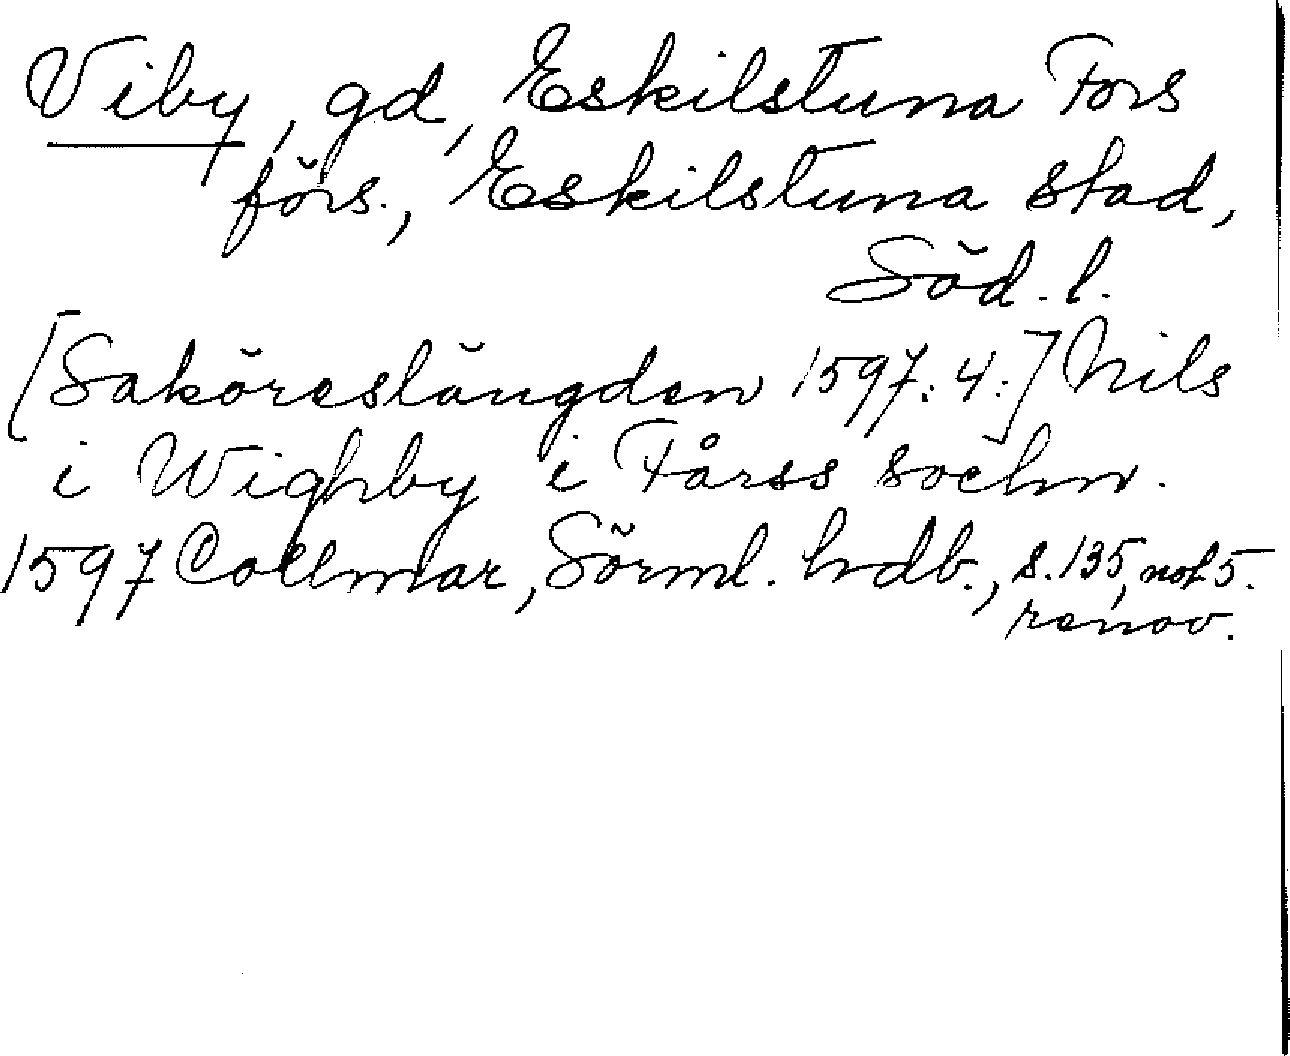 Viby, gd, Eskilstuna Fors
förs., Eskilstuna stad,
Söd. l.
[Saköreslängden 1597: 4:] Nils
i Wighby i Fårss sochn.
1597 Collmar, Sörml. hdb., s. 135, not 5.
renov.